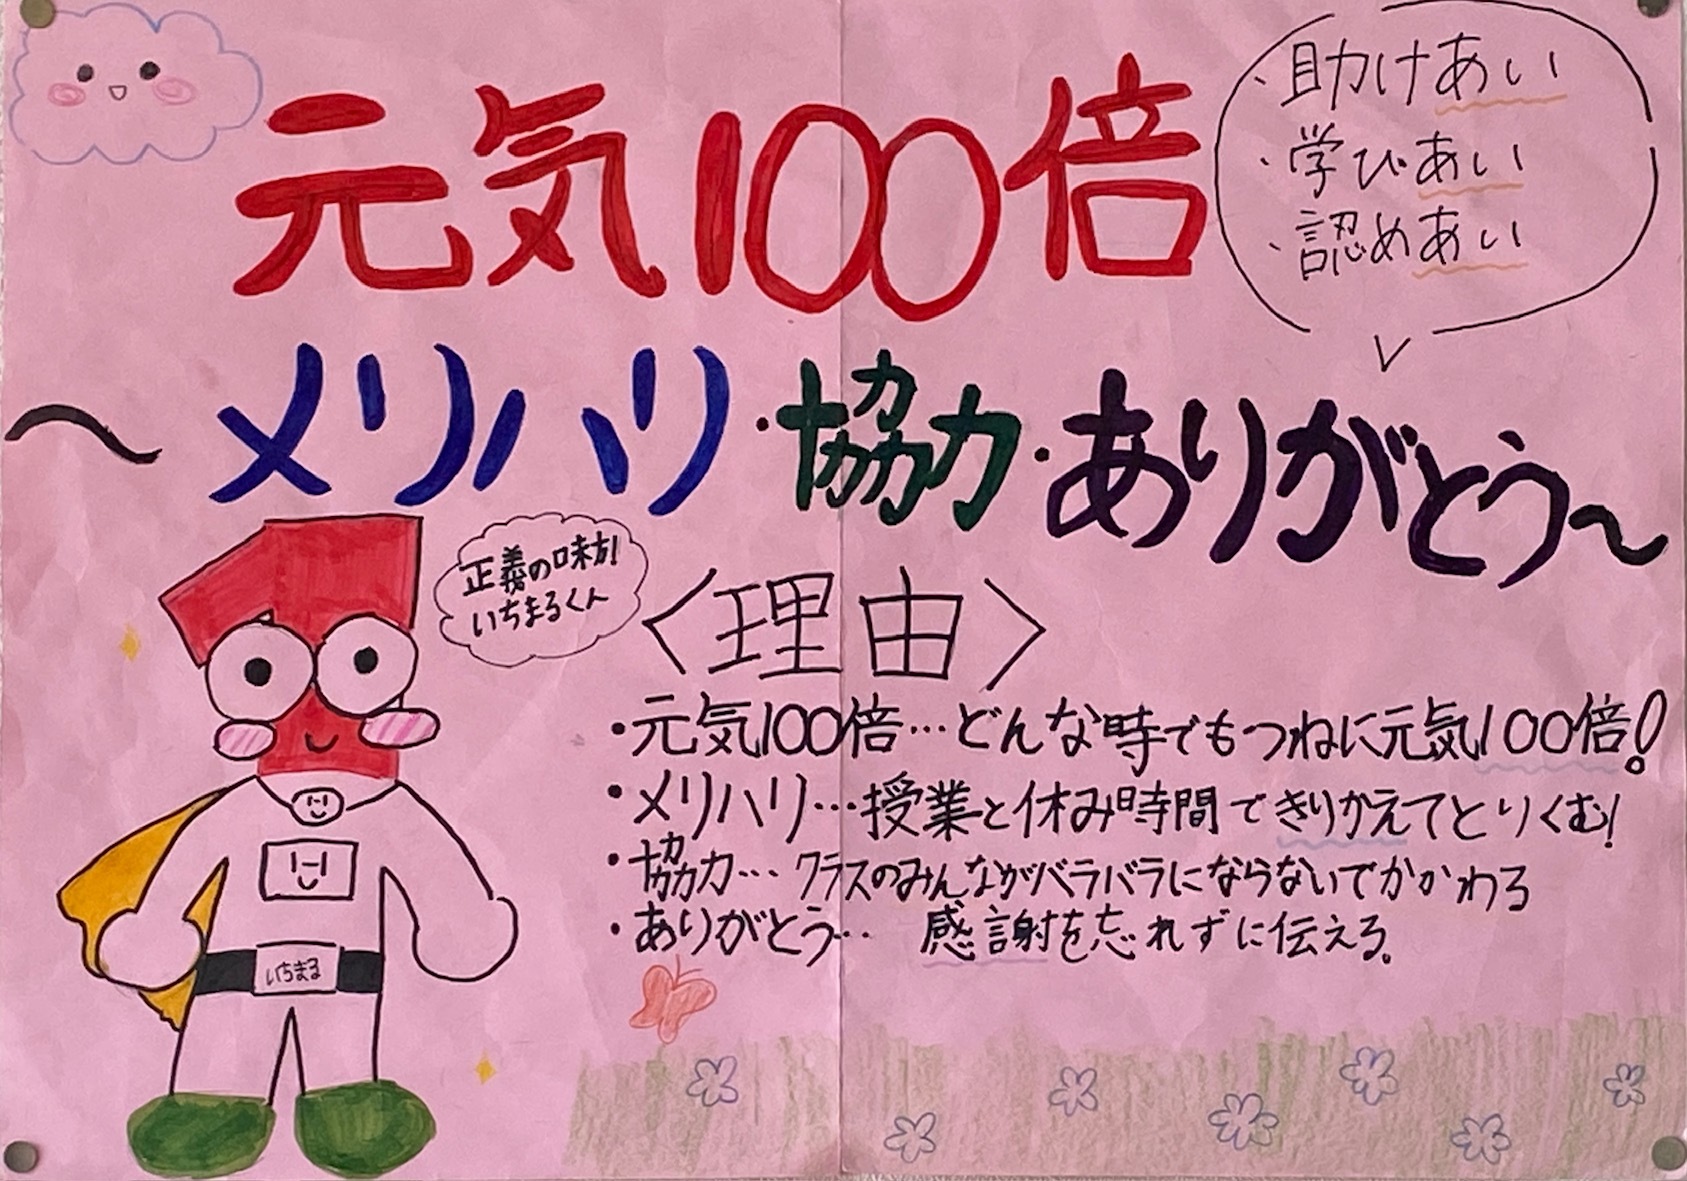 元気100倍
・助けあい
・学びあい
・認めあい
〜メリハリ・協力・ありがとう〜
正義の味方!
いちまるくん
〈理由〉
・元気100倍…どんな時でもつねに元気100倍!
・メリハリ…授業と休み時間できりかえてとりくむ!
・協力…クラスのみんながバラバラにならないでかかわる
・ありがとう… 感謝を忘れずに伝える。
いちまる